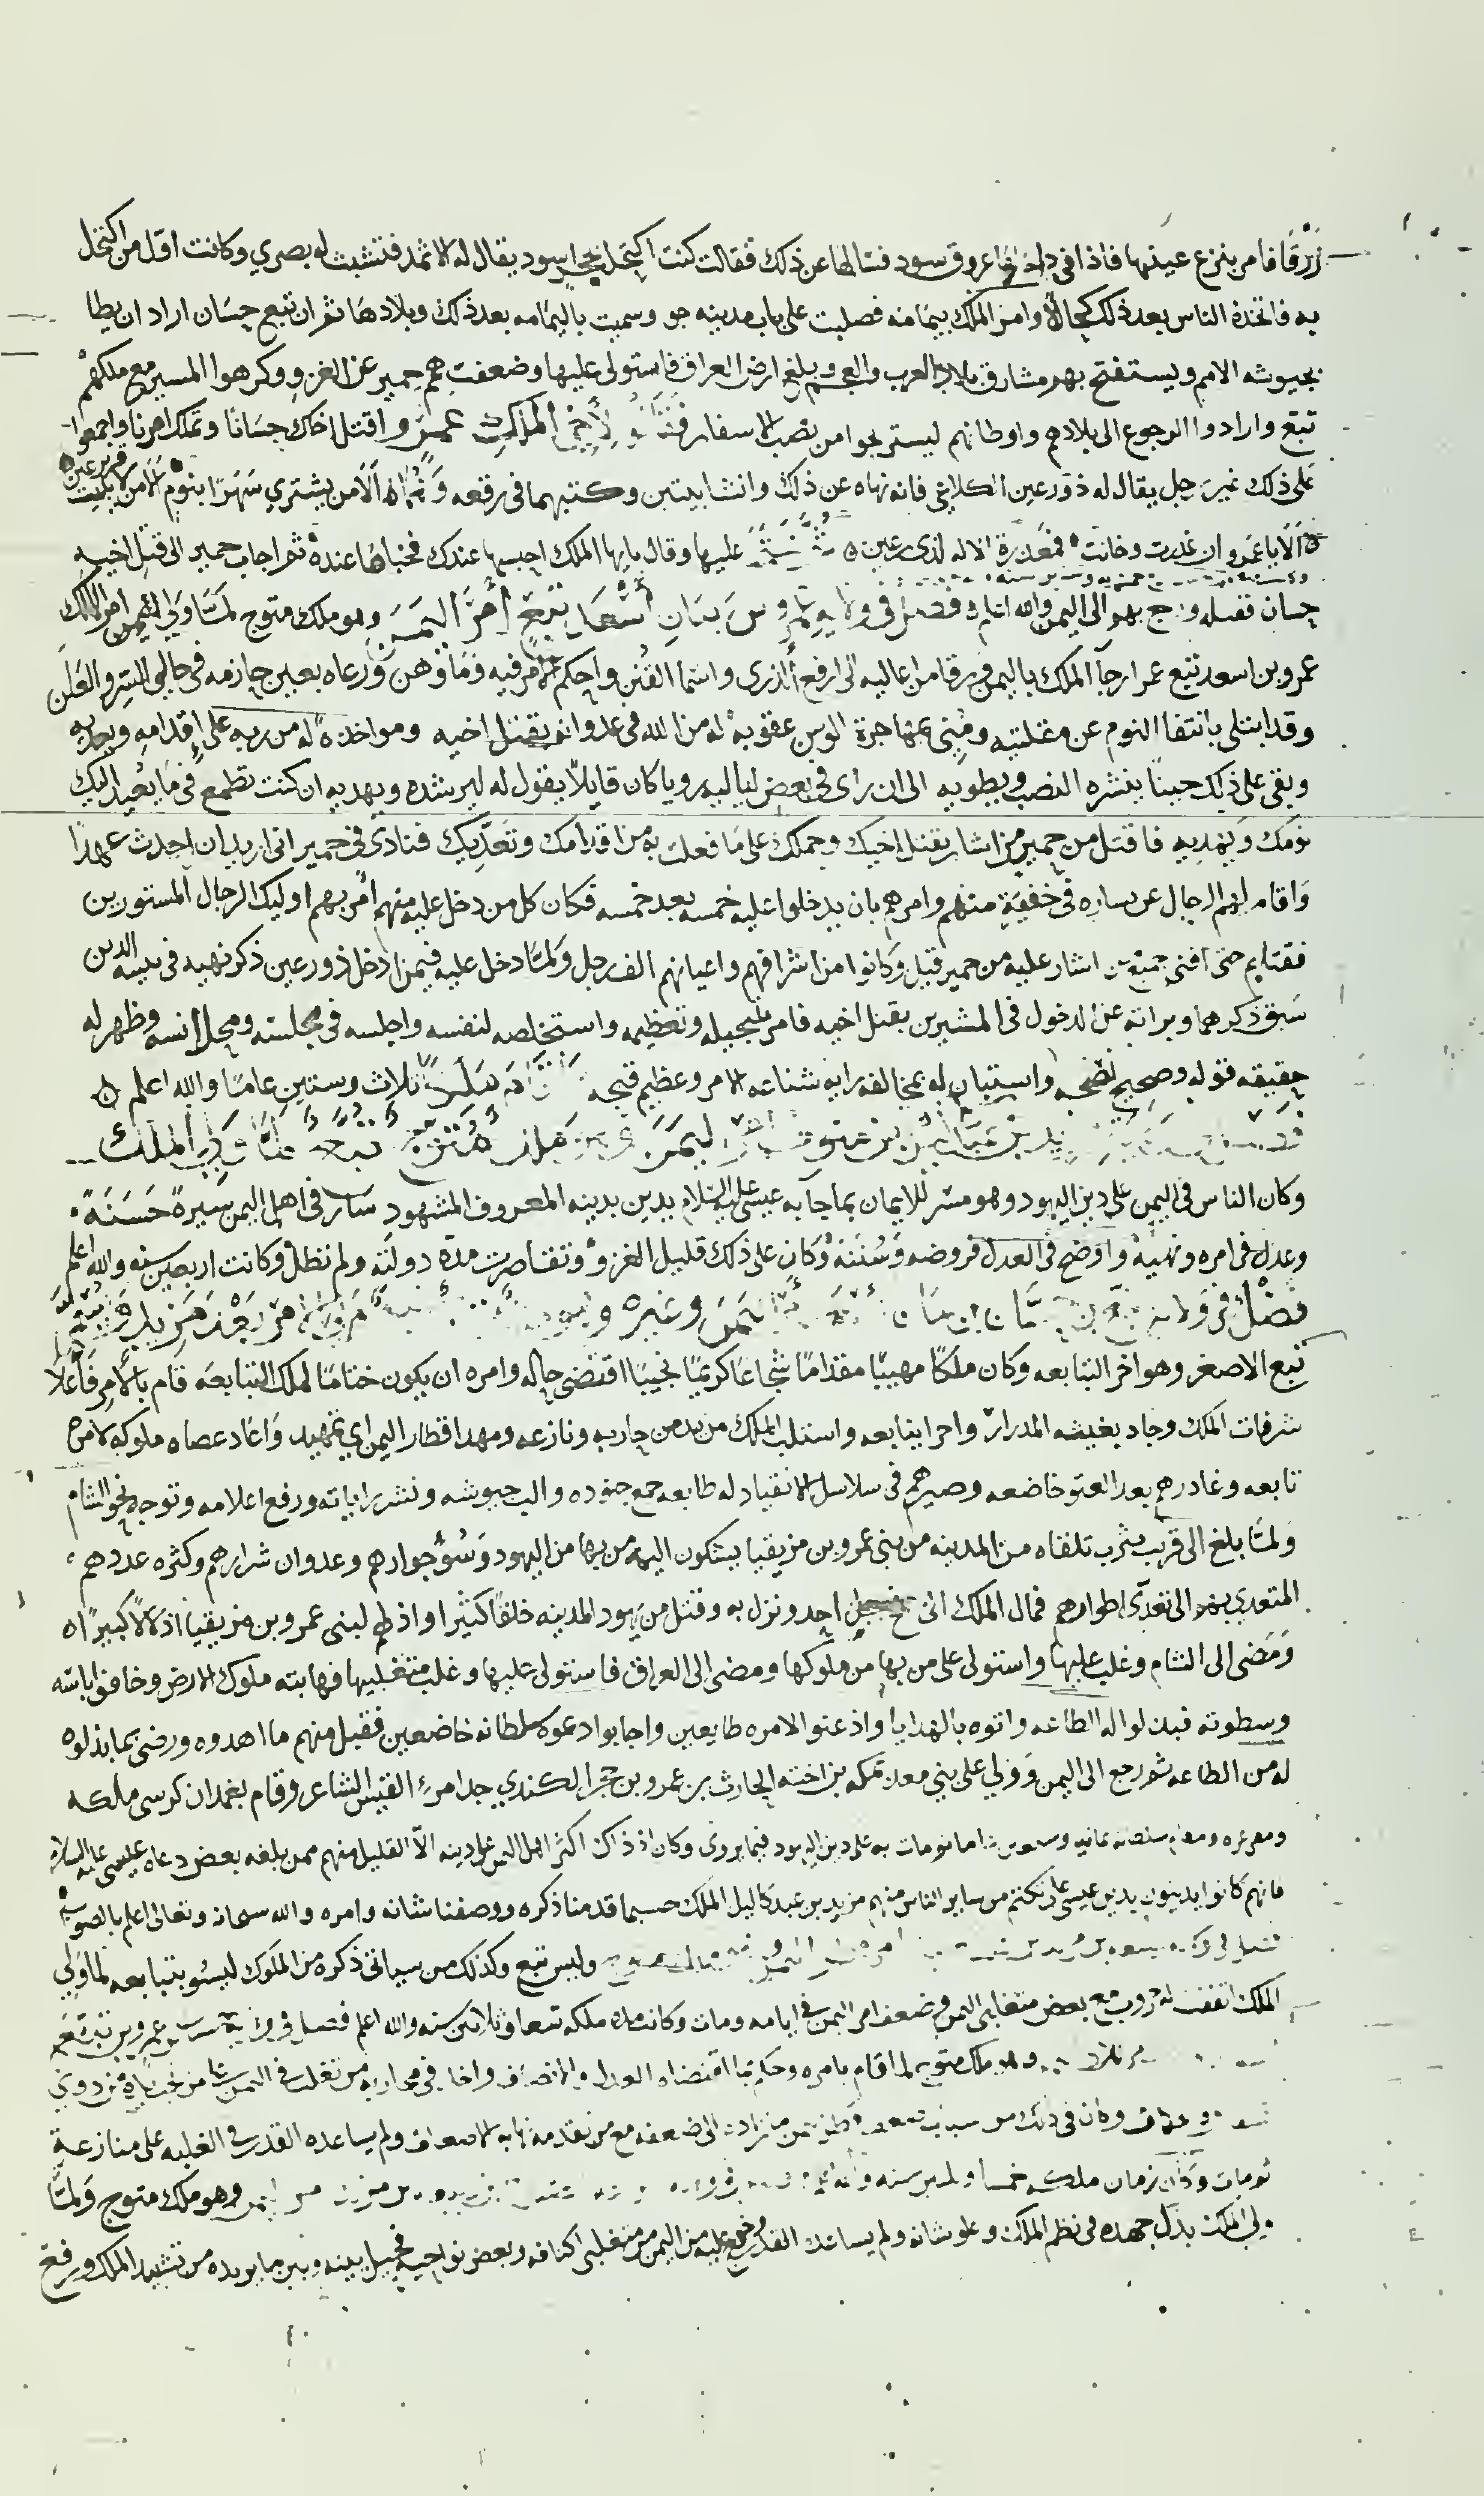 زرقا فامر بنزع عينها فاذا في داخلها عروق سود فسالها عن ذلك فقالت كنت اكتحل بحجر اسود يقال له الاثمد فتشبث له بصري وكانت اول من اكتحل
به فاتخذه الناس بعد ذلك كحالا وامر الملك بيمامه فصلبت على باب مدينه جو وسميت باليمامه بعد ذلك وبلادها ثم ان تبع حسان اراد ان يطا
بجيوشه الامم ويستفتح بهم مشارق بلاد العرب والعجم وبلغ ارض العراق فاستولى عليها وضعفت همم حمير عن الغزو وكرهوا المسير مع ملكهم
تبع وارادوا الرجوع الى بلادهم واوطانهم ليستريحوا من نصب الاسفار فقالوا لاخي الملك عمرو اقتل اخاك حسانا وتملك امرنا واجمعوا
على ذلك غير رجل يقال له ذو رعين الكلاعي فانه نهاه عن ذلك وانشا بيتين وكتبهما في رقعه وهما الا من يشتري سهرا بنوم الا من يبيت قرير عين
الا يا عمرو ان غدرت وخانت فمعذرة الاله لذي رعين عليها وقال يايها الملك احبسها عندك فخباها عنده ثم اجاب حمير الى قتل اخيه
حسان فقتله ورجع بهم الى اليمن والله اعلم فصل في ولايه عمرو بن اسعد تبع امر اليمن وهو ملك متوج لما ولي امر الملك
عمرو بن اسعد تبع عمر ارجآ الملك باليمن فرقا من اعاليه الى ارفع الذرى واسما القنن واحكم الامر فيه وما وهن ورعاه بعين حازمه في حالي السر والعلن
وقد ابتلى بانتفا النوم عن مقلتيه ومني بمهاجرة الوسن عقوبة له من الله في عدوانه بقتل اخيه ومواخذة له من ربه على اقدامه وتعديه
وبقي على ذلك حينا ينشره النصب ويطويه الى ان راى في بعض لياليه رويا كان قايلا يقول له ليرشده ويهديه ان كنت تطمع في ما يعيد اليك
نومك ويهديه فاقتل من حمير من اشار بقتل اخيك وحملك على ما فعلت به من اقدامك وتعديك فنادى في حمير اني اريد ان احدث عهدا
واقام لهم الرجال عن يساره في خفية منهم وامرهم بان يدخلوا عليه خمسه بعد خمسه فكان كل من دخل عليه منهم امر بهم اوليك الرجال المستورين
فقتلهم حتى افنى جميع من اشار عليه من حمير قتل وكانوا من اشرافهم واعيانهم الف رجل ولما دخل عليه فيمن دخل ذو رعين ذكر نهيه في بيتيه الذين
سبق ذكرهما وبراته عن الدخول في المشيرين بقتل اخيه فامر بتبجيله وتعظيمه واستخلصه لنفسه واجلسه في مجلسه ومحل انسه وظهر له
حقيقه قوله وصحيح نصحه واستبان له بمخالفة رايه شناعه الامر وعظيم قبحه ثلاث وستين عاما والله اعلم
وكان الناس في اليمن على دين اليهود وهو مسر للايمان بما جآ به عيسى عليه السلام يدين بدينه المعروف المشهود سار في اهل اليمن سيرة حسنة
وعدل في امره ونهيه واوضح في العدل فروضه وسننه وكان على ذلك قليل الغزو وتقاصرت مدة دولته ولم تطل وكانت اربعين سنه والله اعلم
فصل في ولايه تبع بن حسان
تبع الاصغر وهو اخر التبابعه وكان ملكا مهيبا مقداما شجاعا كريما نجيبا اقتضى حاله وامره ان يكون ختاما لملك التبابعه قام بالامر فاعلا
شرفات الملك وجاد بغيثه المدرار واجرا ينابعه واستلب الملك من يد من حاربه ونازعه ومهد اقطار اليمن اي تمهيد واعاد عصاه ملوكه لامره
تابعه وغادرهم بعد العتو خاضعه وصيرهم في سلاسل الانقياد له طايعه جمع جنوده والب جيوشه ونشر راياته ورفع اعلامه وتوجه نحو الشام
ولما بلغ الى قرب يثرب تلقاه من المدينه من بني عمرو بن مزيقيا يشتكون اليه من بها من اليهود وسوء جوارهم وعدوان شرارهم وكثره عددهم
المتعدي بهم الى تعدي اطوارهم فمال الملك الى جبل احد ونزل به وقتل من يهود المدينه خلقا كثيرا واذلهم لبني عمرو بن مزيقيا اذلالا كبيرا
ومضى الى الشام وغلب عليها واستولى على من بها من ملوكها ومضى الى العراق فاستولى عليها وغلب متغلبيها فهابته ملوك الارض وخافوا باسه
وسطوته فبذلوا له الطاعه واتوه بالهدايا واذعنوا لامره طايعين واجابوا دعوة سلطانه خاضعين فقبل منهم ما اهدوه ورضي بما بذلوه
له من الطاعه ثم رجع الى اليمن وولي على بني معد بمكه بن اخته الحارث بن عمرو بن حجر الكندي جد امرء القيس الشاعر وقام بغمدان كرسي ملكه
ومقر عزه سلطانه ثمانيه وسبعين عاما ثم مات به على دين اليهود فيما يروى وكان اذ ذاك اكثر اهل اليمن على دينه الا القليل منهم ممن بلغه بعض دعاه عيسى عليه السلام
فانهم كانوا يدينون بدين عيسى على تكتم من ساير الناس منهم مزيد بن عبد كاليل الملك حسبما قدمنا ذكره ووصفنا شانه وامره والله سبحانه وتعالى اعلم بالصواب
وليس تبع وكذلك من سياتي ذكره من الملوك ليسوا بتبابعه لما ولي
الملك اتفقت له حروب مع بعض متغلبي اليمن وضعف امر اليمن في ايامه ومات وكانت مده ملكه تسعا وثلاثين سنه والله اعلم فصل في ولايه عمرو بن تبع
وهو ملك متوج لما قام بامره وحكم بما اقتضاه العدل والانصاف
وكان في ذلك الى ضعفه مع من تقدمه ولم يساعده القدر في الغلبه على منازعه
ثم مات وكان زمان ملكه خمسا وهو ملك متوج ولما
ولي الملك بذل جهده في نظم الملك وعلو شانه ولم يساعده القدر من اليمن من متغلبي اكنافه وبعض نواحيه فحيل بينه وبين ما يريده من تشييد الملك ورفع